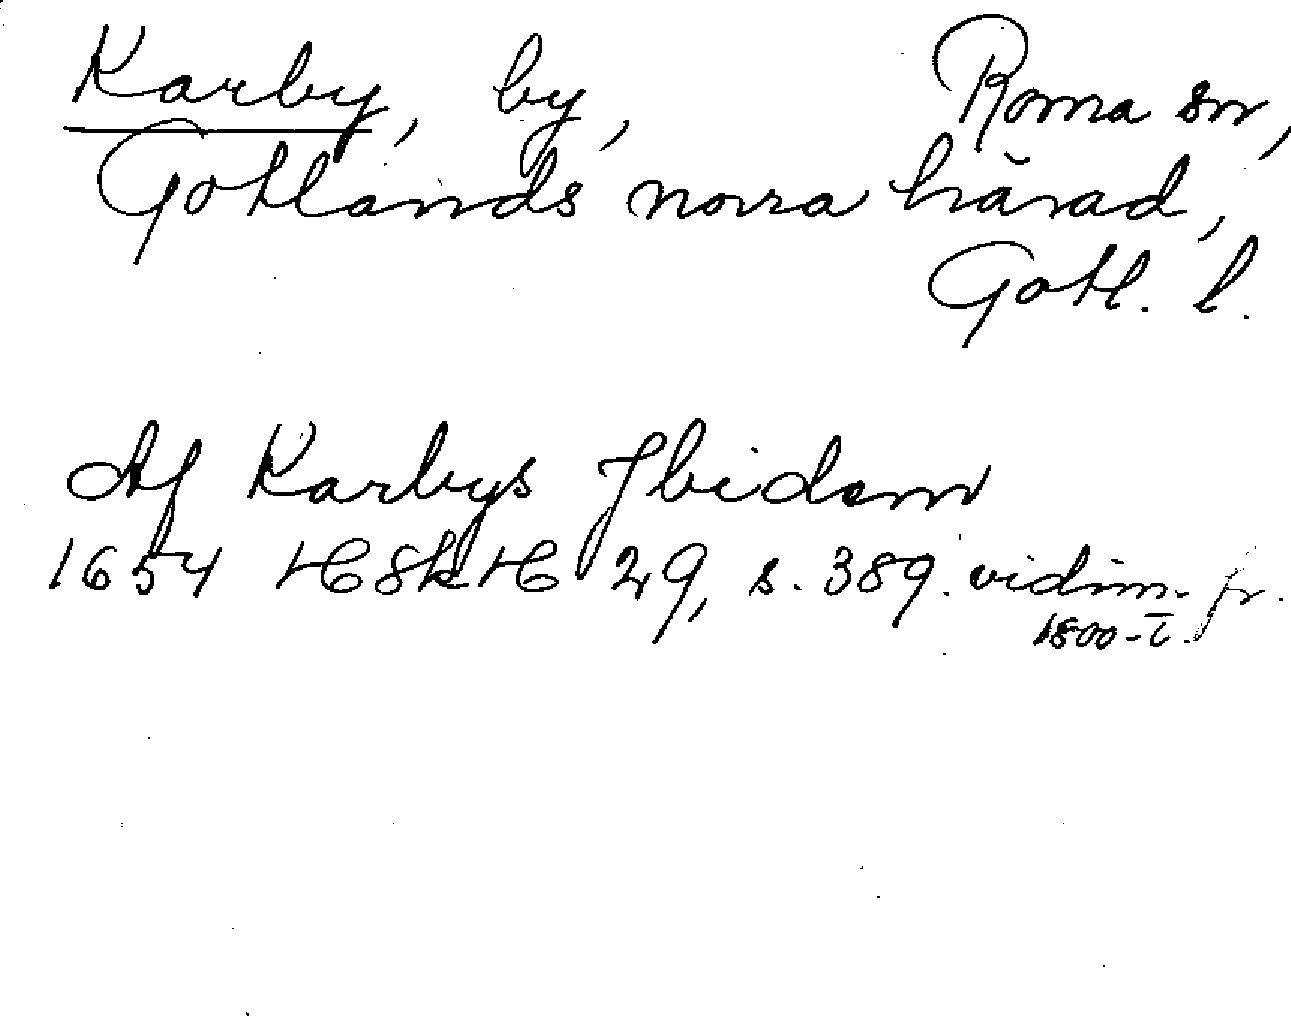 Karby, by, Roma sn,
Gotlands norra härad,
Gotl. l.
Af Karbys Jbidem
1654 HSkH 29, s. 389. vidim. fr.
1800-t.